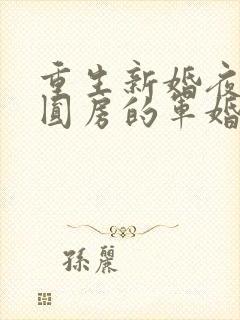 重生新婚夜
圆房的军婚
孫麗